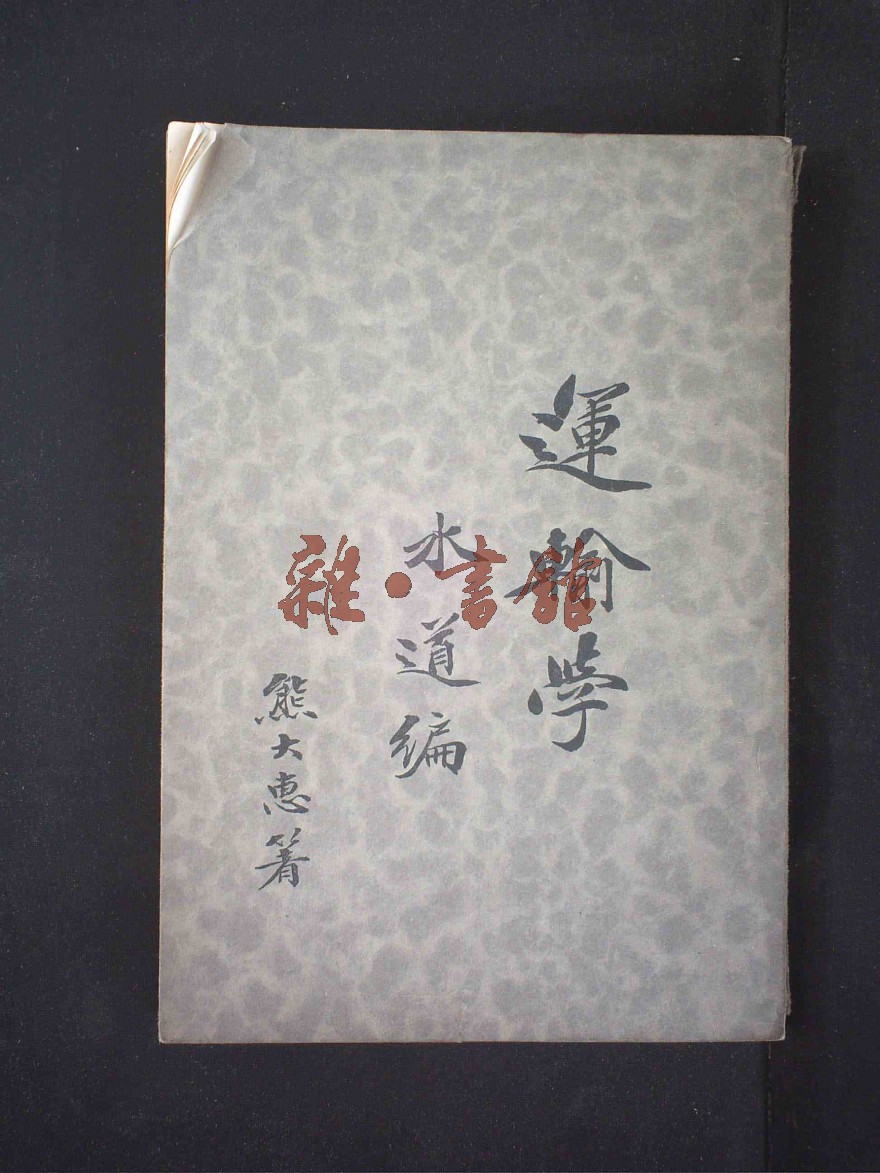 運輸學
水道編
熊大恵箸
雜·書館